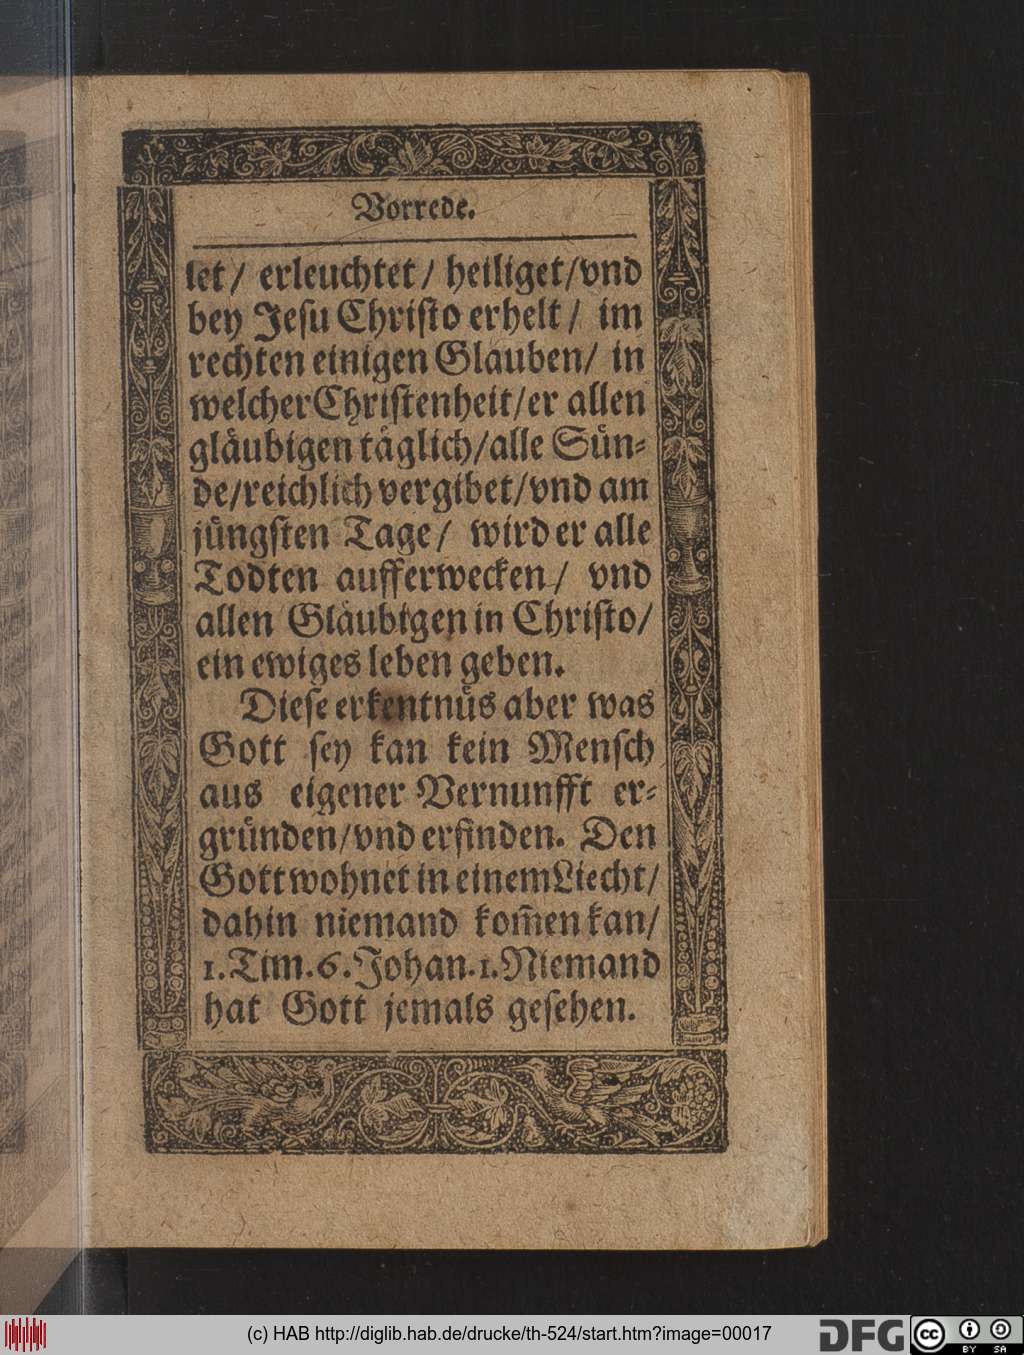 Vorrede.
let/ erleuchtet/ heiliget/vnd
bey Jesu Christo erhelt/ im
rechten einigen Glauben/ in
welcher Christenheit/er allen
glaͤubigen taͤglich/alle Suͤn⸗
de/reichlich vergibet/vnd am
juͤngsten Tage/ wird er alle
Todten aufferwecken/ vnd
allen Glaͤubigen in Christo/
ein ewiges leben geben.
Diese erkentnuͤs aber was
Gott sey kan kein Mensch
aus eigener Vernunfft er⸗
gruͤnden/vnd erfinden. Den
Gott wohnet in einem Liecht/
dahin niemand kom̃en kan/
1. Tim. 6. Johan. 1. Niemand
hat Gott jemals gesehen.
(c) HAB http://diglib.hab.de/drucke/th-524/start.htm?image=00017
DFG
cc
BY SA